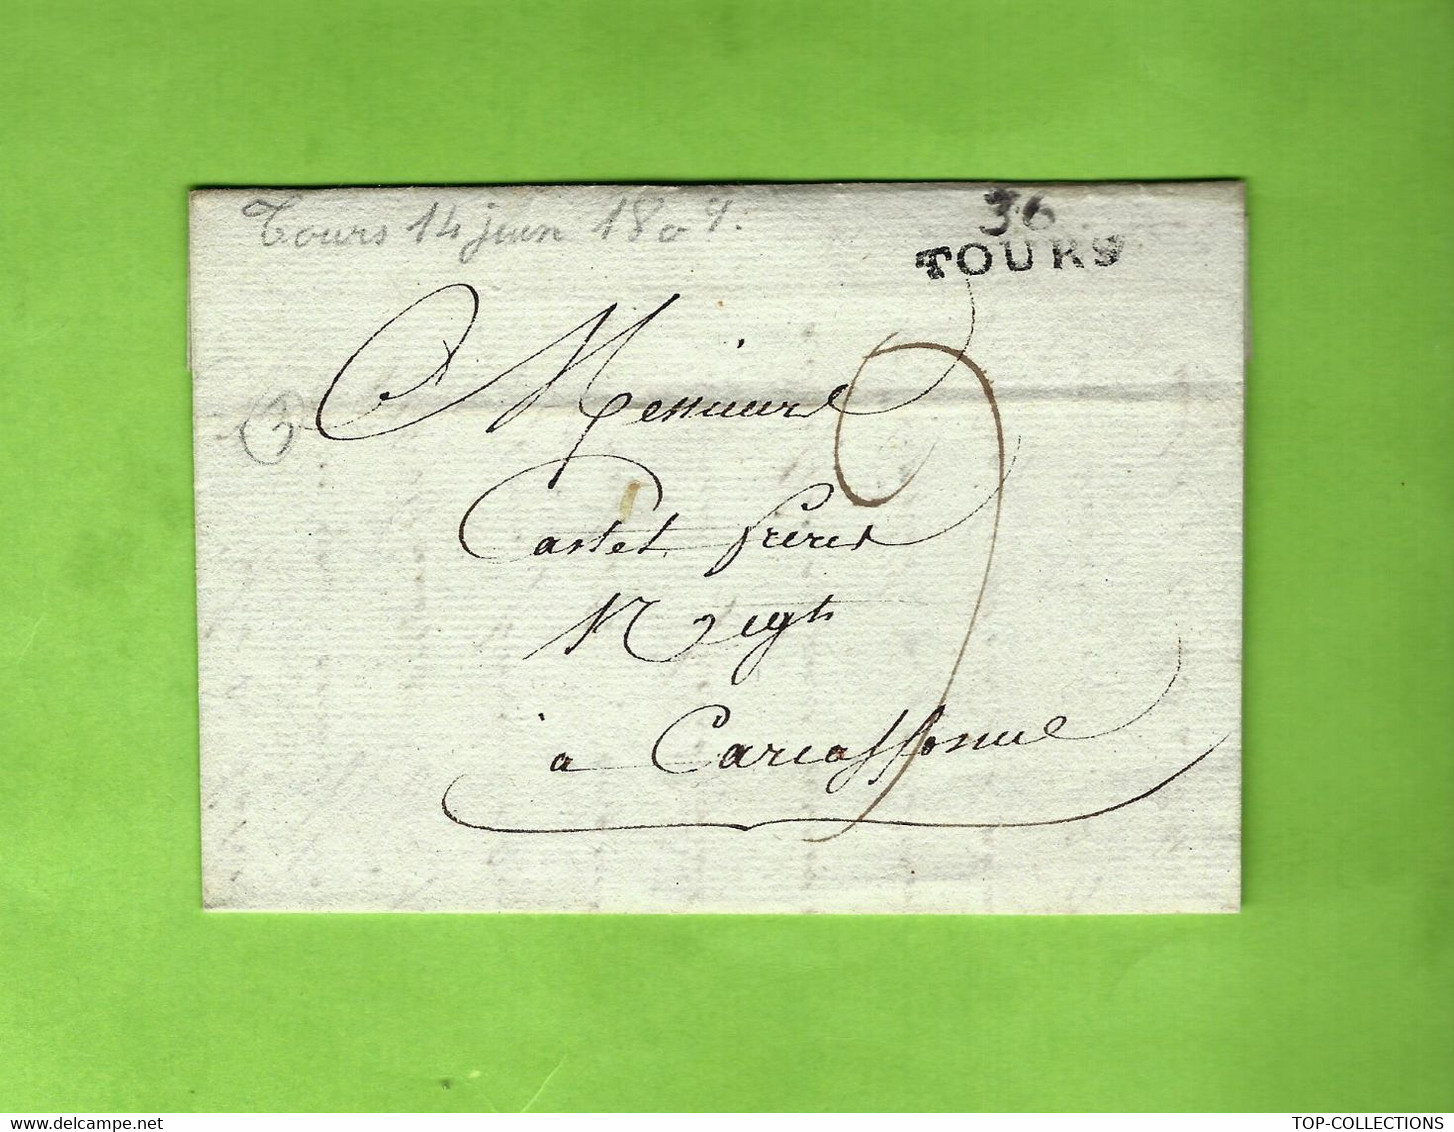 Tours 14 juin 1809.
36
TOURS
Messieurs
Castel frères
Négts
à Carcassonne
9
www.delcampe.net
TOP-COLLECTIONS